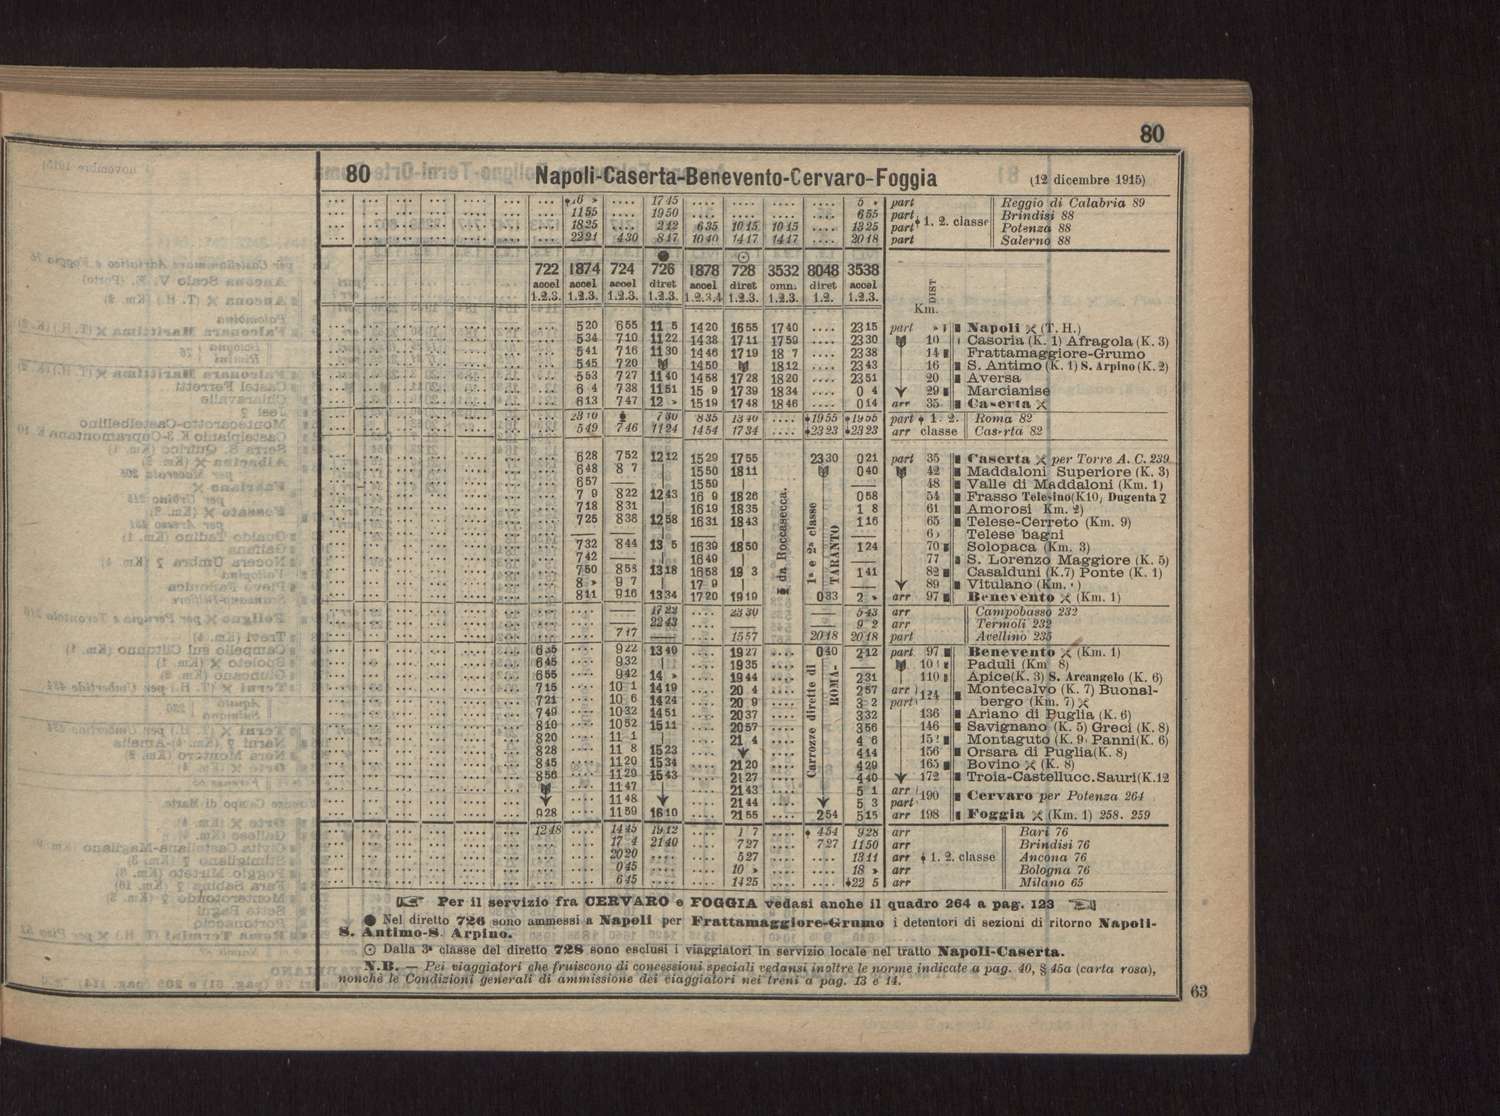 80
80 Napoli-Caserta-Benevento-Cervaro-Foggia (12 dicembre 1915)
... ... ... ... ... ... .... 17 45 .... .... .... .... part Reggio di Calabria 89
... ... ... ... ... ... 11 55 .... 19 50 .... .... .... .... 6 55 part Brindisi 88
... ... ... ... ... ... 18 25 .... 2 42 6 35 10 15 10 15 .... 13 25 part 1. 2. classe Potenza 88
... ... ... ... ... ... 22 21 4 30 8 47 10 40 14 17 14 17 .... 20 18 part Salerno 88
722 1874 724 726 1878 728 3532 8048 3538
accel accel accel diret accel diret omn. diret accel
1.2.3. 1.2.3. 1.2.3. 1.2.3. 1.2.3.4 1.2.3. 1.2.3. 1.2. 1.2.3. DIST Km.
... 5 20 6 55 11 5 14 20 16 55 17 40 .... 23 15 part » Napoli (T. H.)
... 5 34 7 10 11 22 14 38 17 11 17 59 .... 23 30 10 Casoria (K. 1) Afragola (K. 3)
... 5 41 7 16 11 30 14 46 17 19 18 7 .... 23 38 14 Frattamaggiore-Grumo
... 5 45 7 20 14 50 18 12 .... 23 43 16 S. Antimo (K. 1) S. Arpino (K. 2)
... 5 53 7 27 11 40 14 58 17 28 18 20 .... 23 51 20 Aversa
... 6 4 7 38 11 51 15 9 17 39 18 34 .... 0 4 29 Marcianise
... 6 13 7 47 12 » 15 19 17 48 18 46 .... 0 14 arr 35 Caserta
... 23 10 7 30 8 35 13 40 .... 19 55 19 55 part 1. 2. Roma 82
... 5 49 7 46 11 24 14 54 17 34 .... 23 23 23 23 arr classe Caserta 82
... 6 28 7 52 12 12 15 29 17 55 23 30 0 21 part 35 Caserta per Torre A. C. 239
... 6 48 8 7 | 15 50 18 11 0 40 42 Maddaloni Superiore (K. 3)
... 6 57 — | 15 59 | — 48 Valle di Maddaloni (Km. 1)
... 7 9 8 22 12 43 16 9 18 26 0 58 54 Frasso Telesino (K10) Dugenta
... 7 18 8 31 | 16 19 18 35 1 8 61 Amorosi Km. 2)
... 7 25 8 38 12 58 16 31 18 43 1 16 65 Telese-Cerreto (Km. 9)
... — — | — | — Telese bagni
... 7 32 8 44 13 5 16 39 18 50 1 24 70 Solopaca (Km. 3)
... 7 42 — | 16 49 | — 77 S. Lorenzo Maggiore (K. 5)
... 7 50 8 58 13 18 16 58 19 3 1 41 82 Casalduni (K.7) Ponte (K. 1)
... 8 » 9 7 | 17 9 | — 89 Vitulano (Km.
... 8 11 9 16 13 34 17 20 19 19 0 33 2 » arr 97 Benevento (Km. 1)
da Roccasecca.
Carrozze dirette di 1ª e 2ª classe
ROMA-TARANTO
... .... — 17 22 .... 23 30 — 5 43 arr Campobasso 232
... .... — 22 43 .... — — 9 2 arr Termoli 232
... .... 7 17 — .... 15 57 20 18 20 18 part Avellino 235
6 35 .... 9 22 13 49 .... 19 27 .... 0 40 2 12 part 97 Benevento (Km. 1)
6 45 .... 9 32 | .... 19 35 .... — Paduli (Km 8)
6 55 .... 9 42 14 » .... 19 44 .... 2 31 110 Apice(K. 3) S. Arcangelo (K. 6)
7 15 .... 10 1 14 19 .... 20 4 .... 2 57 arr 124 Montecalvo (K. 7) Buonal-
7 21 .... 10 6 14 24 .... 20 9 .... 3 2 part bergo (Km. 7)
7 49 .... 10 32 14 51 .... 20 37 .... 3 32 136 Ariano di Puglia (K. 6)
8 10 .... 10 52 15 11 .... 20 57 .... 3 56 146 Savignano (K. 5) Greci (K. 8)
8 20 .... 11 1 | .... 21 4 .... 4 6 Montaguto (K. 9) Panni(K. 6)
8 28 .... 11 8 15 23 .... .... 4 14 156 Orsara di Puglia(K. 8)
8 45 .... 11 20 15 34 .... 21 20 .... 4 29 165 Bovino (K. 8)
8 56 .... 11 29 15 43 .... 21 27 .... 4 40 172 Troia-Castellucc.Sauri(K.12
.... 11 47 .... 21 43 .... 5 1 arr 190 Cervaro per Potenza 264
.... 11 48 .... 21 44 .... 5 3 part
9 28 .... 11 59 16 10 .... 21 55 .... 2 54 5 15 arr 198 Foggia (Km. 1) 258. 259
12 48 .... 14 45 19 12 .... 1 7 .... 4 54 9 28 arr Bari 76
... .... 17 4 21 40 .... 7 27 .... 7 27 11 50 arr Brindisi 76
... .... 20 20 .... .... 5 27 .... .... 13 11 arr 1. 2. classe Ancona 76
... .... 0 45 .... .... 10 » .... .... 18 » arr Bologna 76
... .... 6 45 .... .... 14 25 .... .... 22 5 arr Milano 65
☞ Per il servizio fra CERVARO e FOGGIA vedasi anche il quadro 264 a pag. 123 ☜
● Nel diretto 726 sono ammessi a Napoli per Frattamaggiore-Grumo i detentori di sezioni di ritorno Napoli-
S. Antimo-S. Arpino.
⊙ Dalla 3ª classe del diretto 728 sono esclusi i viaggiatori in servizio locale nel tratto Napoli-Caserta.
N.B. — Pei viaggiatori che fruiscono di concessioni speciali vedansi inoltre le norme indicate a pag. 40, § 45a (carta rosa),
nonchè le Condizioni generali di ammissione dei viaggiatori nei treni a pag. 13 e 14.
63